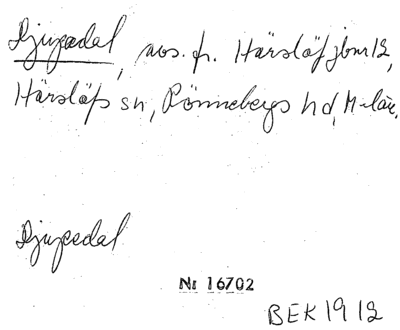 Djupadal, avs. fr. Härslöf jbnr 12,
Härslöfs sn, Rönnebergs hd, M-län.
Djupadal
Nr 16702
BEK 1912